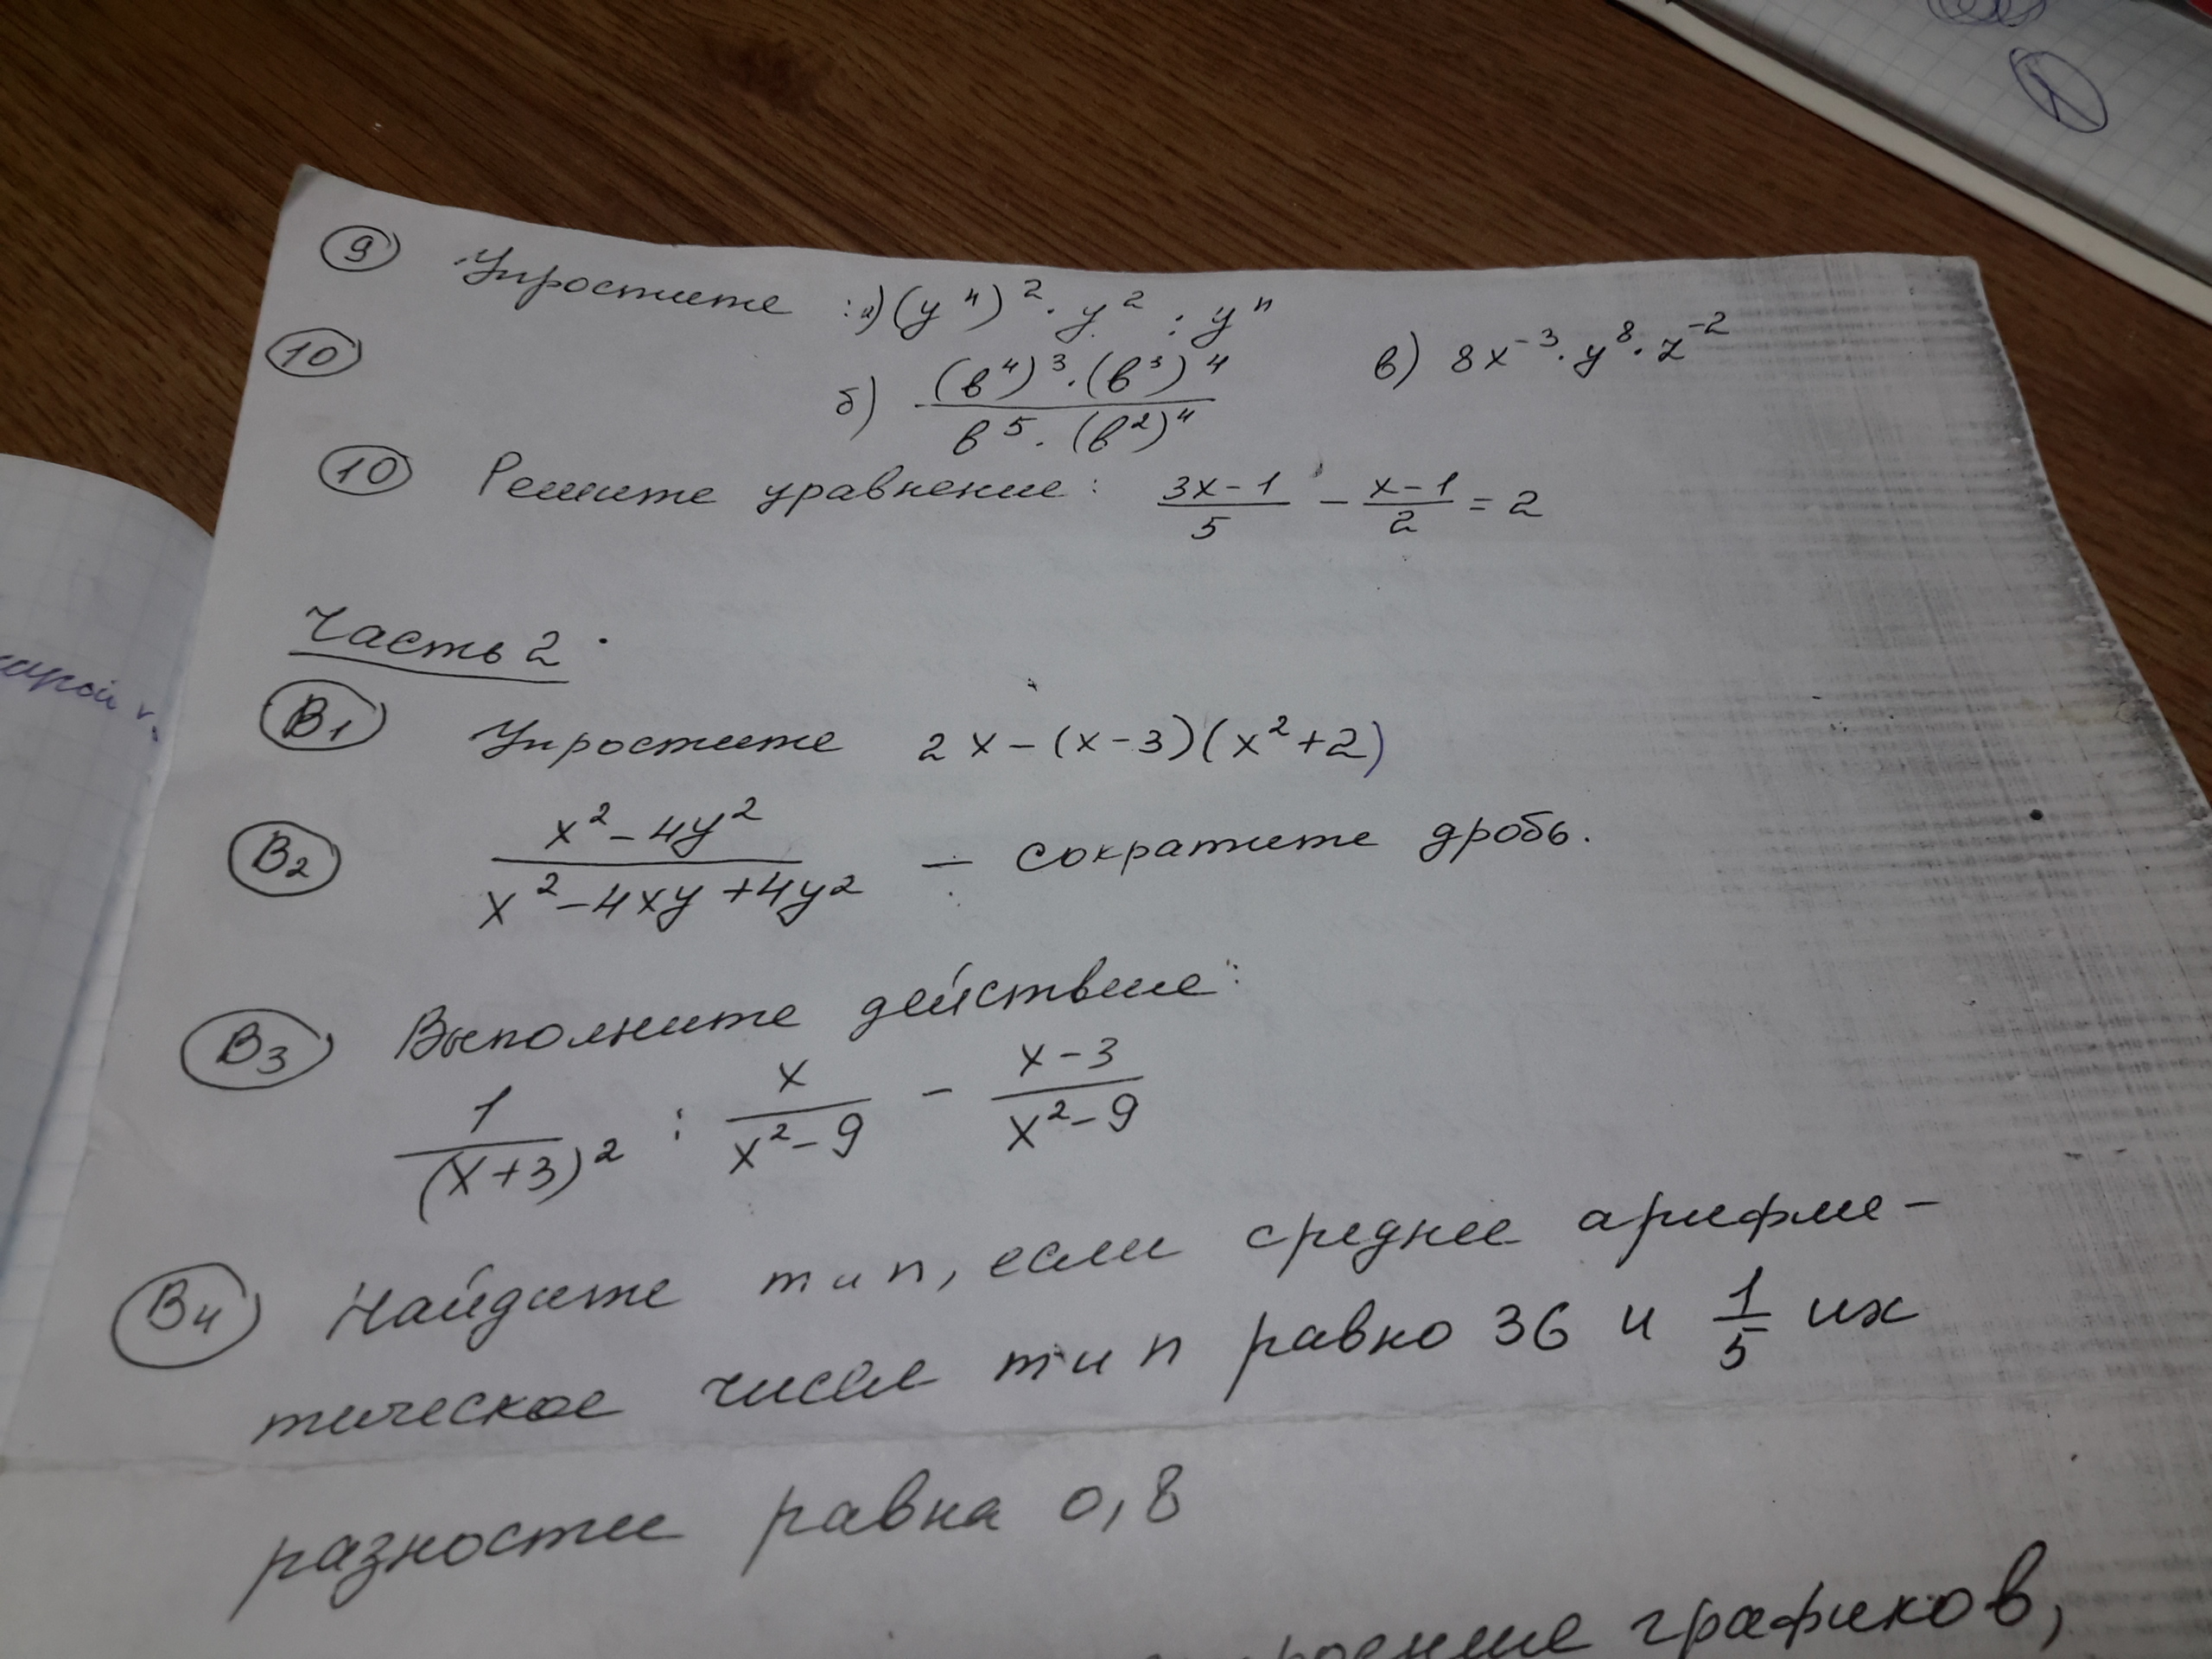 9 Упростите: а) (y⁴)² · y² : yⁿ
10
б) (в⁴)³ · (в³)⁴ / в⁵ · (в²)⁴ в) 8x⁻³ · y⁸ · z⁻²
10 Решите уравнение: (3x-1)/5 - (x-1)/2 = 2
Часть 2
В1 Упростите 2x-(x-3)(x²+2)
В2 (x²-4y²)/(x²-4xy+4y²) — сократите дробь.
В3 Выполните действие:
1/(x+3)² : x/(x²-9) - (x-3)/(x²-9)
В4 Найдите m и n, если среднее арифме-
тическое чисел m и n равно 36 и 1/5 их
разности равна 0,8
графиков,